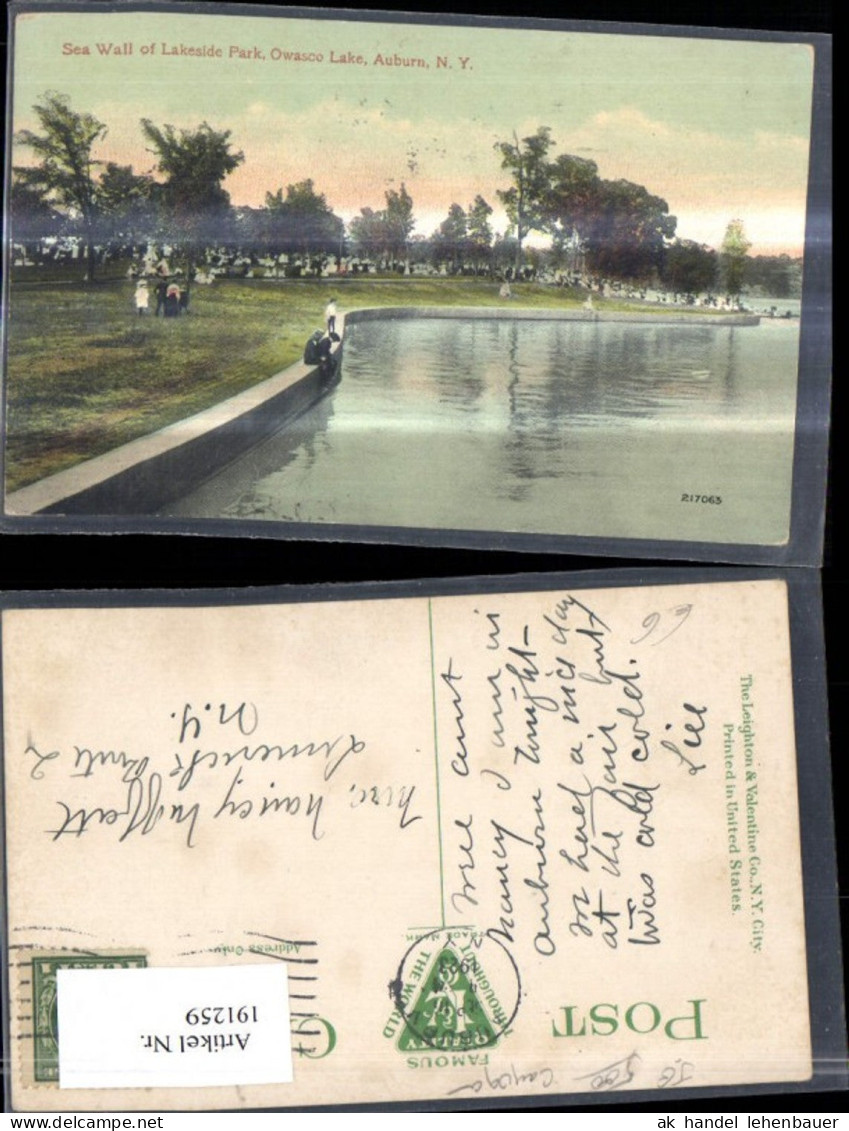 Sea Wall of Lakeside Park, Owasco Lake, Auburn, N. Y.
217063
POST C
FAMOUS
THROUGHOUT
THE WORLD
TRADE MARK
Address Only
The Leighton & Valentine Co., N.Y. City.
Printed in United States.
Well aunt
Nancy I am in
auburn tonight-
we had a nice day
at the fair but
was cold cold.
Mrs. Nancy Moffatt
N.Y.
Artikel Nr.
191259
Cayuga
500
€6
ak handel lehenbauer